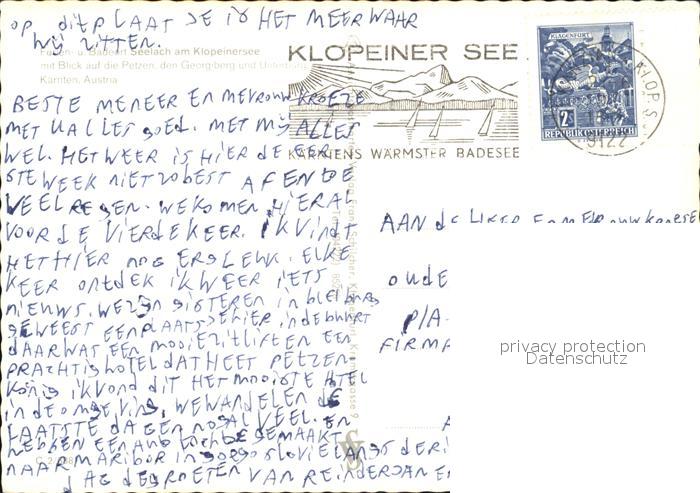 op dit PLAATSJE is HET MEER WAAR
WIJ ZITTEN.
Ferien- u. Badeort Seelach am Klopeinersee
mit Blick auf die Petzen, den Georgiberg und
Kärnten, Austria
KLOPEINER SEE
KÄRNTENS WÄRMSTER BADESEE
KLAGENFURT
2S
REPUBLIK ÖSTERREICH
9122
BESTE MENEER EN MEVROUW KROEZE
MET U ALLES goed. MET MIJ ALLES
WEL. HET WEER is HIER DE EER
STE WEEK NIET ZO BEST AF EN TOE
VEEL REGEN. WE KOMEN HIER AL
VOOR DE VIERDE KEER. IK VINDT
HET HIER nog ERG LEUK. ELKE
KEER ontdek ik WEER iETS
niEUWS. WE ZIJN GISTEREN in bleiburg
GEWEEST EEN PLAATSJE HIER in de buurt
DAAR WAS EEN mooiE ZITLIFT EN EEN
PRACHTIG HOTEL DAT HEET PETZEN
König ik vond DIT HET MOOISTE HOTEL
in de omgeving. WE WANDELEN DE
LAATSTE DAGEN nogAL VEEL. EN
HEBBEN EEN AUTOtochtje GEMAAKT
nAAR MARIBOR in joegoslovie LANGS de
DAG de GROETEN VAN REINDERJAN
AAN de
oude
P/A
FIRMA
privacy protection
Datenschutz